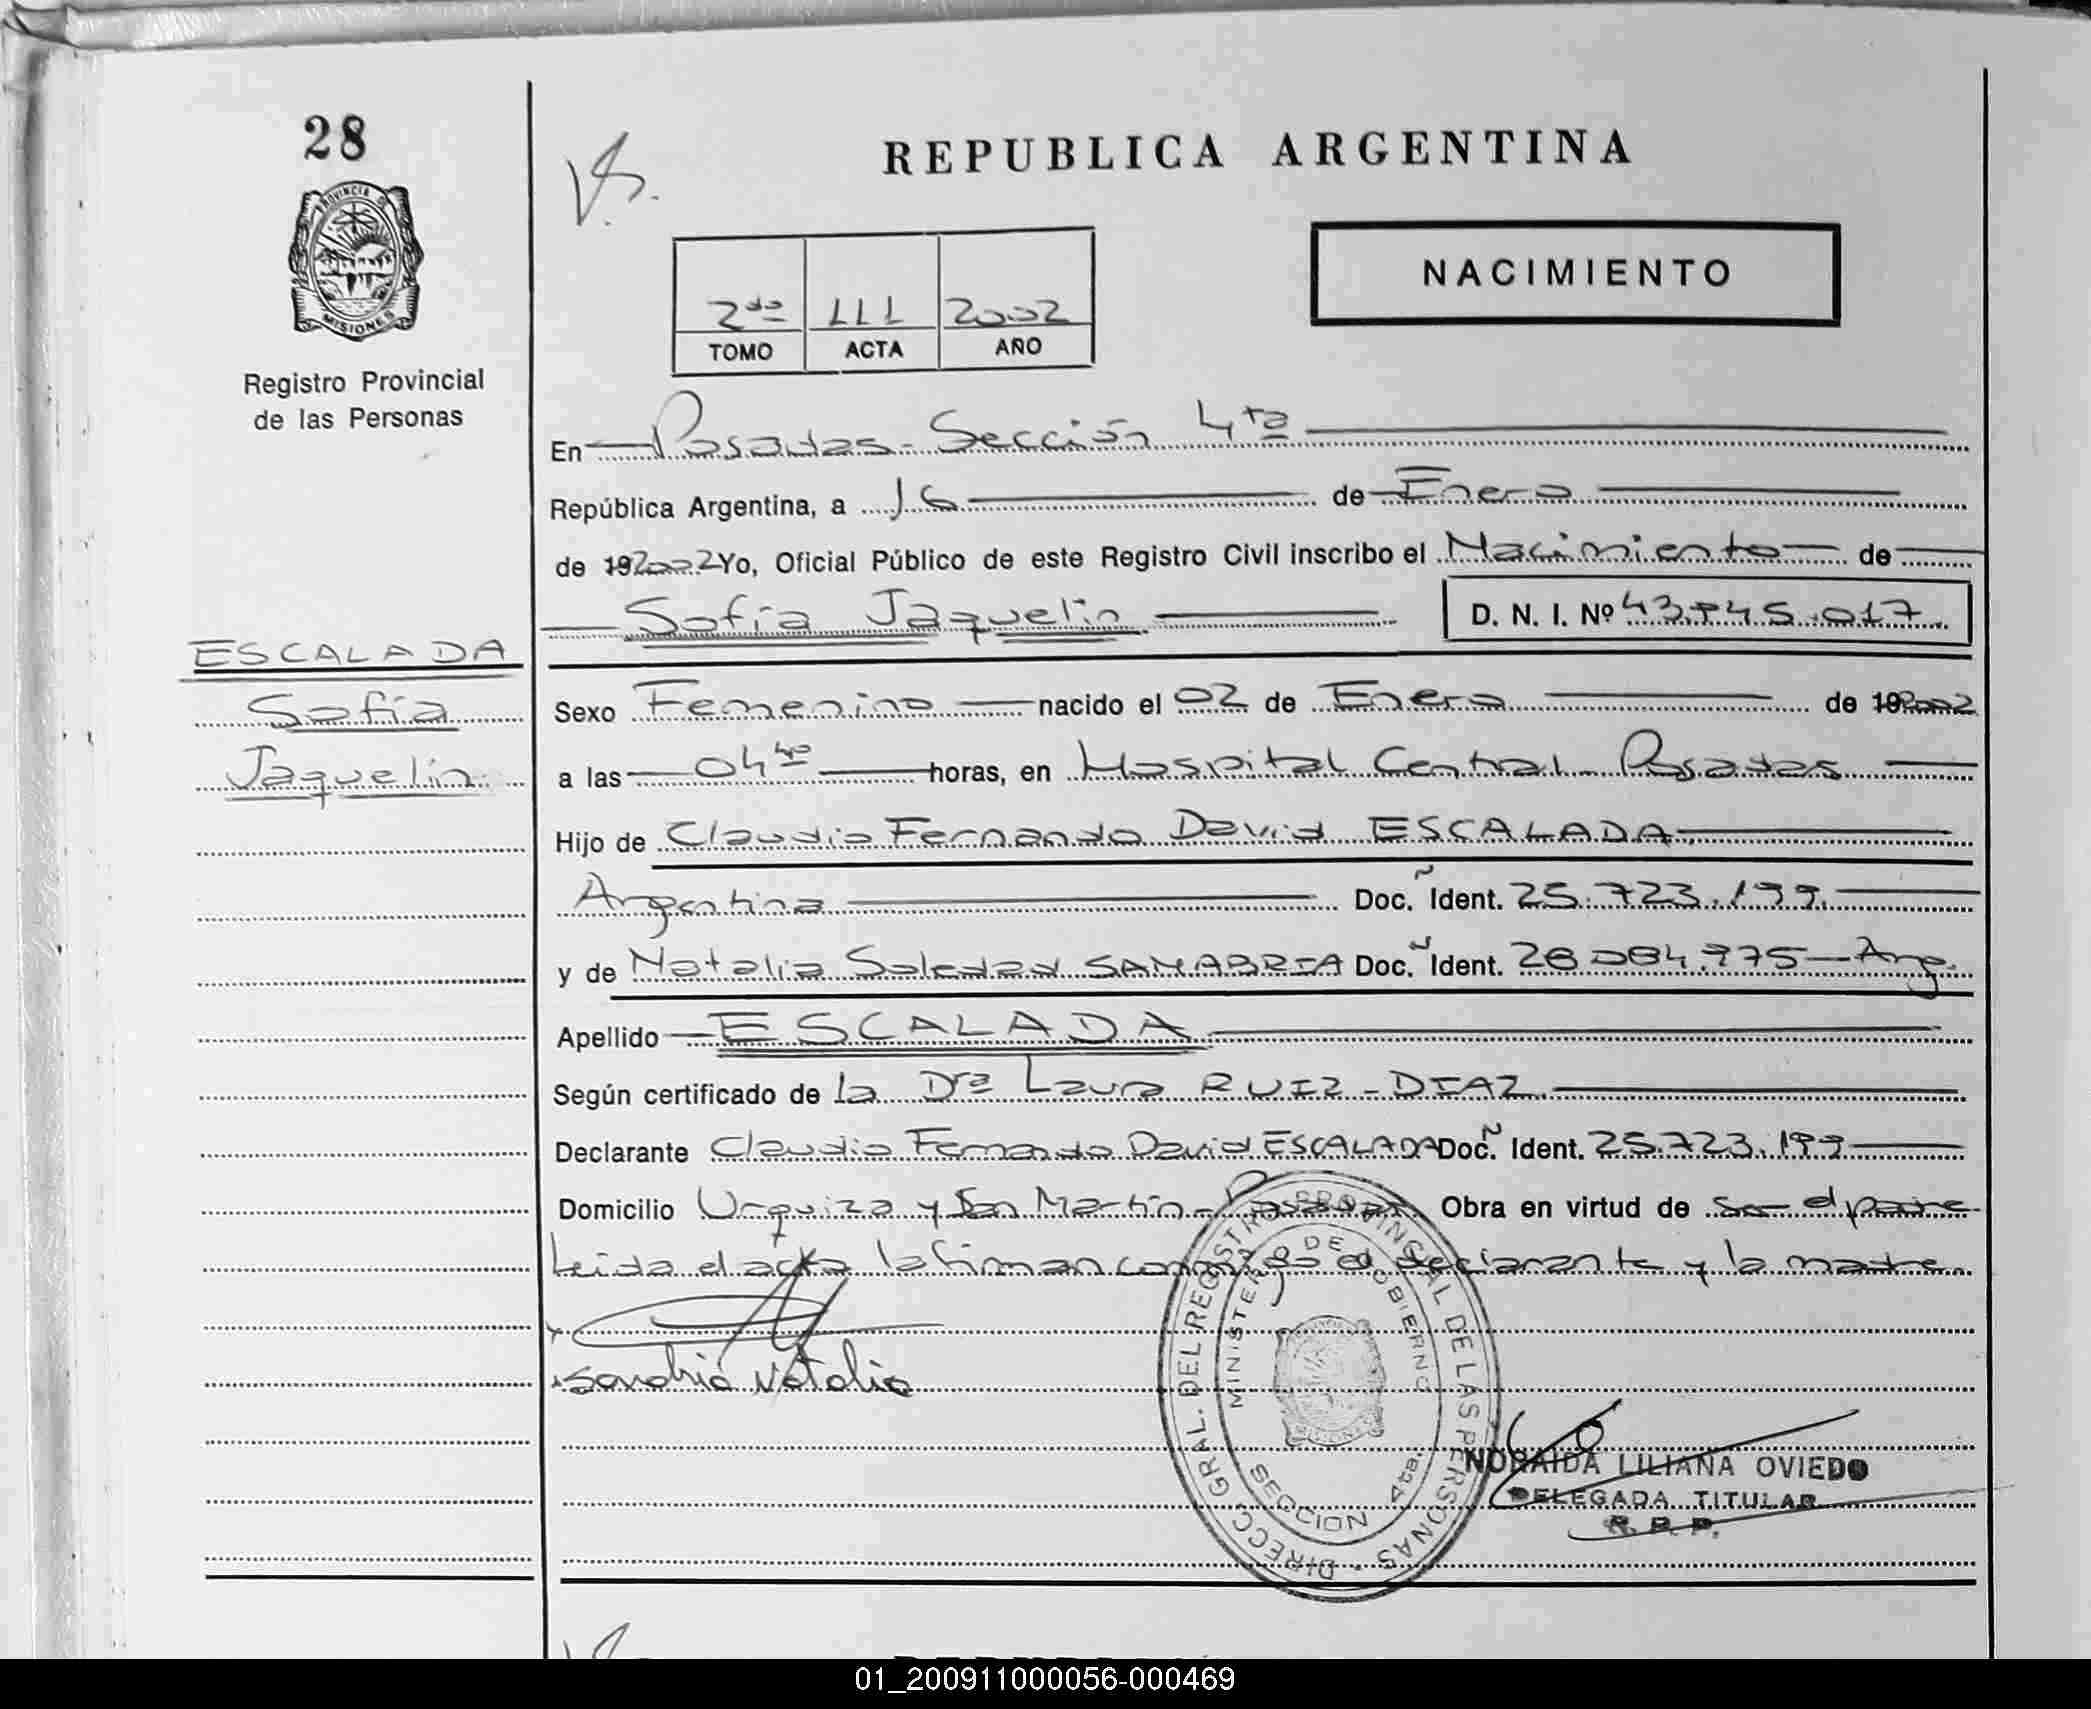 28
REPUBLICA ARGENTINA
PROVINCIA DE
MISIONES
Registro Provincial
de las Personas
NACIMIENTO
2do 111 2002
TOMO ACTA AÑO
En Posadas - Sección 4ta
República Argentina, a 16 de Enero
de 192002 Yo, Oficial Público de este Registro Civil inscribo el Nacimiento de
Sofía Jaquelin D. N. I. Nº 43.845.017
ESCALADA
Sofía
Jaquelin
Sexo Femenino nacido el 02 de Enero de 192002
a las 04 40 horas, en Hospital Central Posadas
Hijo de Claudio Fernando David ESCALADA
Argentina Doc. Ident. 25.723.199
y de Natalia Soledad SANABRIA Doc. Ident. 28.084.975 - Arg.
Apellido ESCALADA
Según certificado de la Dra Laura RUIZ - DIAZ
Declarante Claudio Fernando David ESCALADA Doc. Ident. 25.723.199
Domicilio Urquiza y San Martín - Posadas Obra en virtud de ser el padre
Leida el acta la firman conmigo el declarante y la madre
Sanabria Natalia
DIRECC. GRAL. DEL REGISTRO PROVINCIAL DE LAS PERSONAS
MINISTERIO DE GOBIERNO
SECCION 4ta.
NORAIDA LILIANA OVIEDO
DELEGADA TITULAR
R. P. P.
01_200911000056-000469